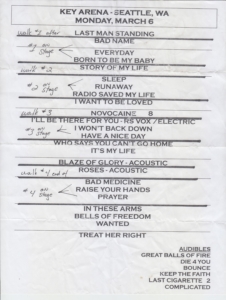 KEY ARENA - SEATTLE, WA
MONDAY, MARCH 6
walk #1 after
LAST MAN STANDING
BAD NAME
#2 Stage
EVERYDAY
BORN TO BE MY BABY
walk #2
STORY OF MY LIFE
SLEEP
#2 Stage
RUNAWAY
RADIO SAVED MY LIFE
I WANT TO BE LOVED
walk #3
NOVOCAINE 8
I'LL BE THERE FOR YOU - RS VOX / ELECTRIC
#3 Stage
I WON'T BACK DOWN
HAVE A NICE DAY
WHO SAYS YOU CAN'T GO HOME
IT'S MY LIFE
BLAZE OF GLORY - ACOUSTIC
walk #4 end of
ROSES - ACOUSTIC
BAD MEDICINE
#4 Stage
RAISE YOUR HANDS
PRAYER
IN THESE ARMS
BELLS OF FREEDOM
WANTED
TREAT HER RIGHT
AUDIBLES
GREAT BALLS OF FIRE
DIE 4 YOU
BOUNCE
KEEP THE FAITH
LAST CIGARETTE 2
COMPLICATED